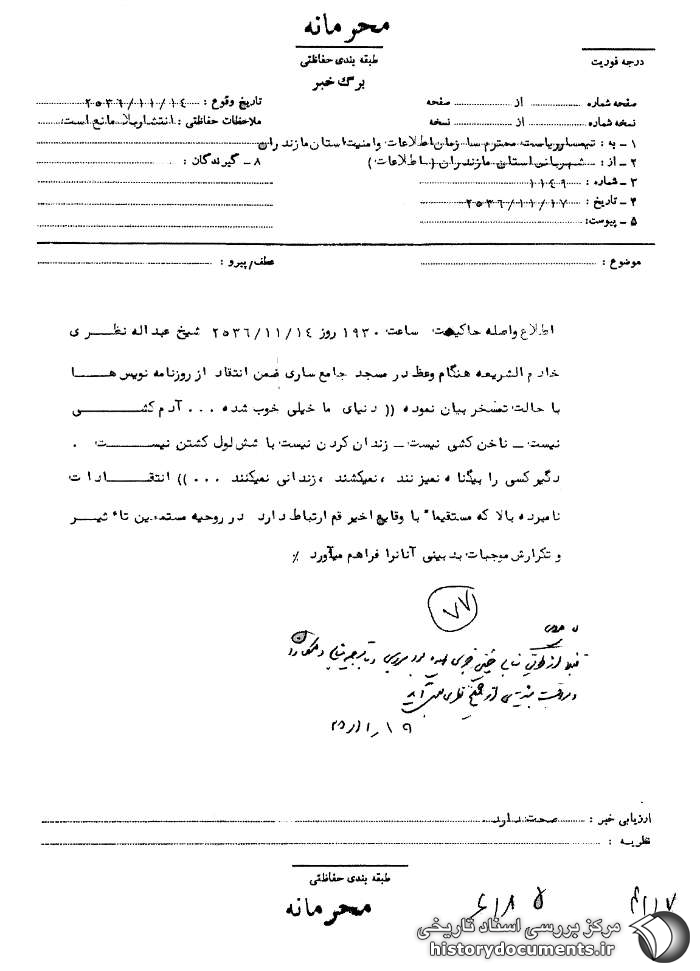 محرمانه
طبقه بندی حفاظتی
برگ خبر
درجه فوریت
صفحه شماره از صفحه
نسخه شماره از نسخه
۱ – به : تیمسار ریاست محترم سازمان اطلاعات و امنیت استان مازندران
۲ – از : شهربانی استان مازندران (اطلاعات)
۳ – شماره : ۱۱۴۹
۴ – تاریخ : ۲۵۳۶/۱۱/۱۷
۵ – پیوست:
تاریخ وقوع : ۲۵۳۶/۱۱/۱۴
ملاحظات حفاظتی : انتشار بلا مانع است
۸ – گیرندگان :
موضوع : عطف/پیرو :
اطلاع واصله حاکیست ساعت ۱۹۳۰ روز ۲۵۳۶/۱۱/۱۴ شیخ عبداله نظری
خادم الشریعه هنگام وعظ در مسجد جامع ساری ضمن انتقاد از روزنامه نویس ها
با حالت تمسخر بیان نموده (( دنیای ما خیلی خوب شده ... آدم کشی
نیست – ناخن کشی نیست – زندان کردن نیست با شش لول کشتن نیست .
دگیر کسی را بیگناه نمیزنند ، نمیکشند ، زندانی نمیکنند ... )) انتقادات
نامبرده بالا که مستقیما" با وقایع اخیر قم ارتباط دارد در روحیه مستمعین تاثیر
و تکرارش موجبات بدبینی آنانرا فراهم میآورد ٪
۷۷
ارزیابی خبر : صحت دارد
نظریه :
طبقه بندی حفاظتی
محرمانه
مرکز بررسی اسناد تاریخی
historydocuments.ir